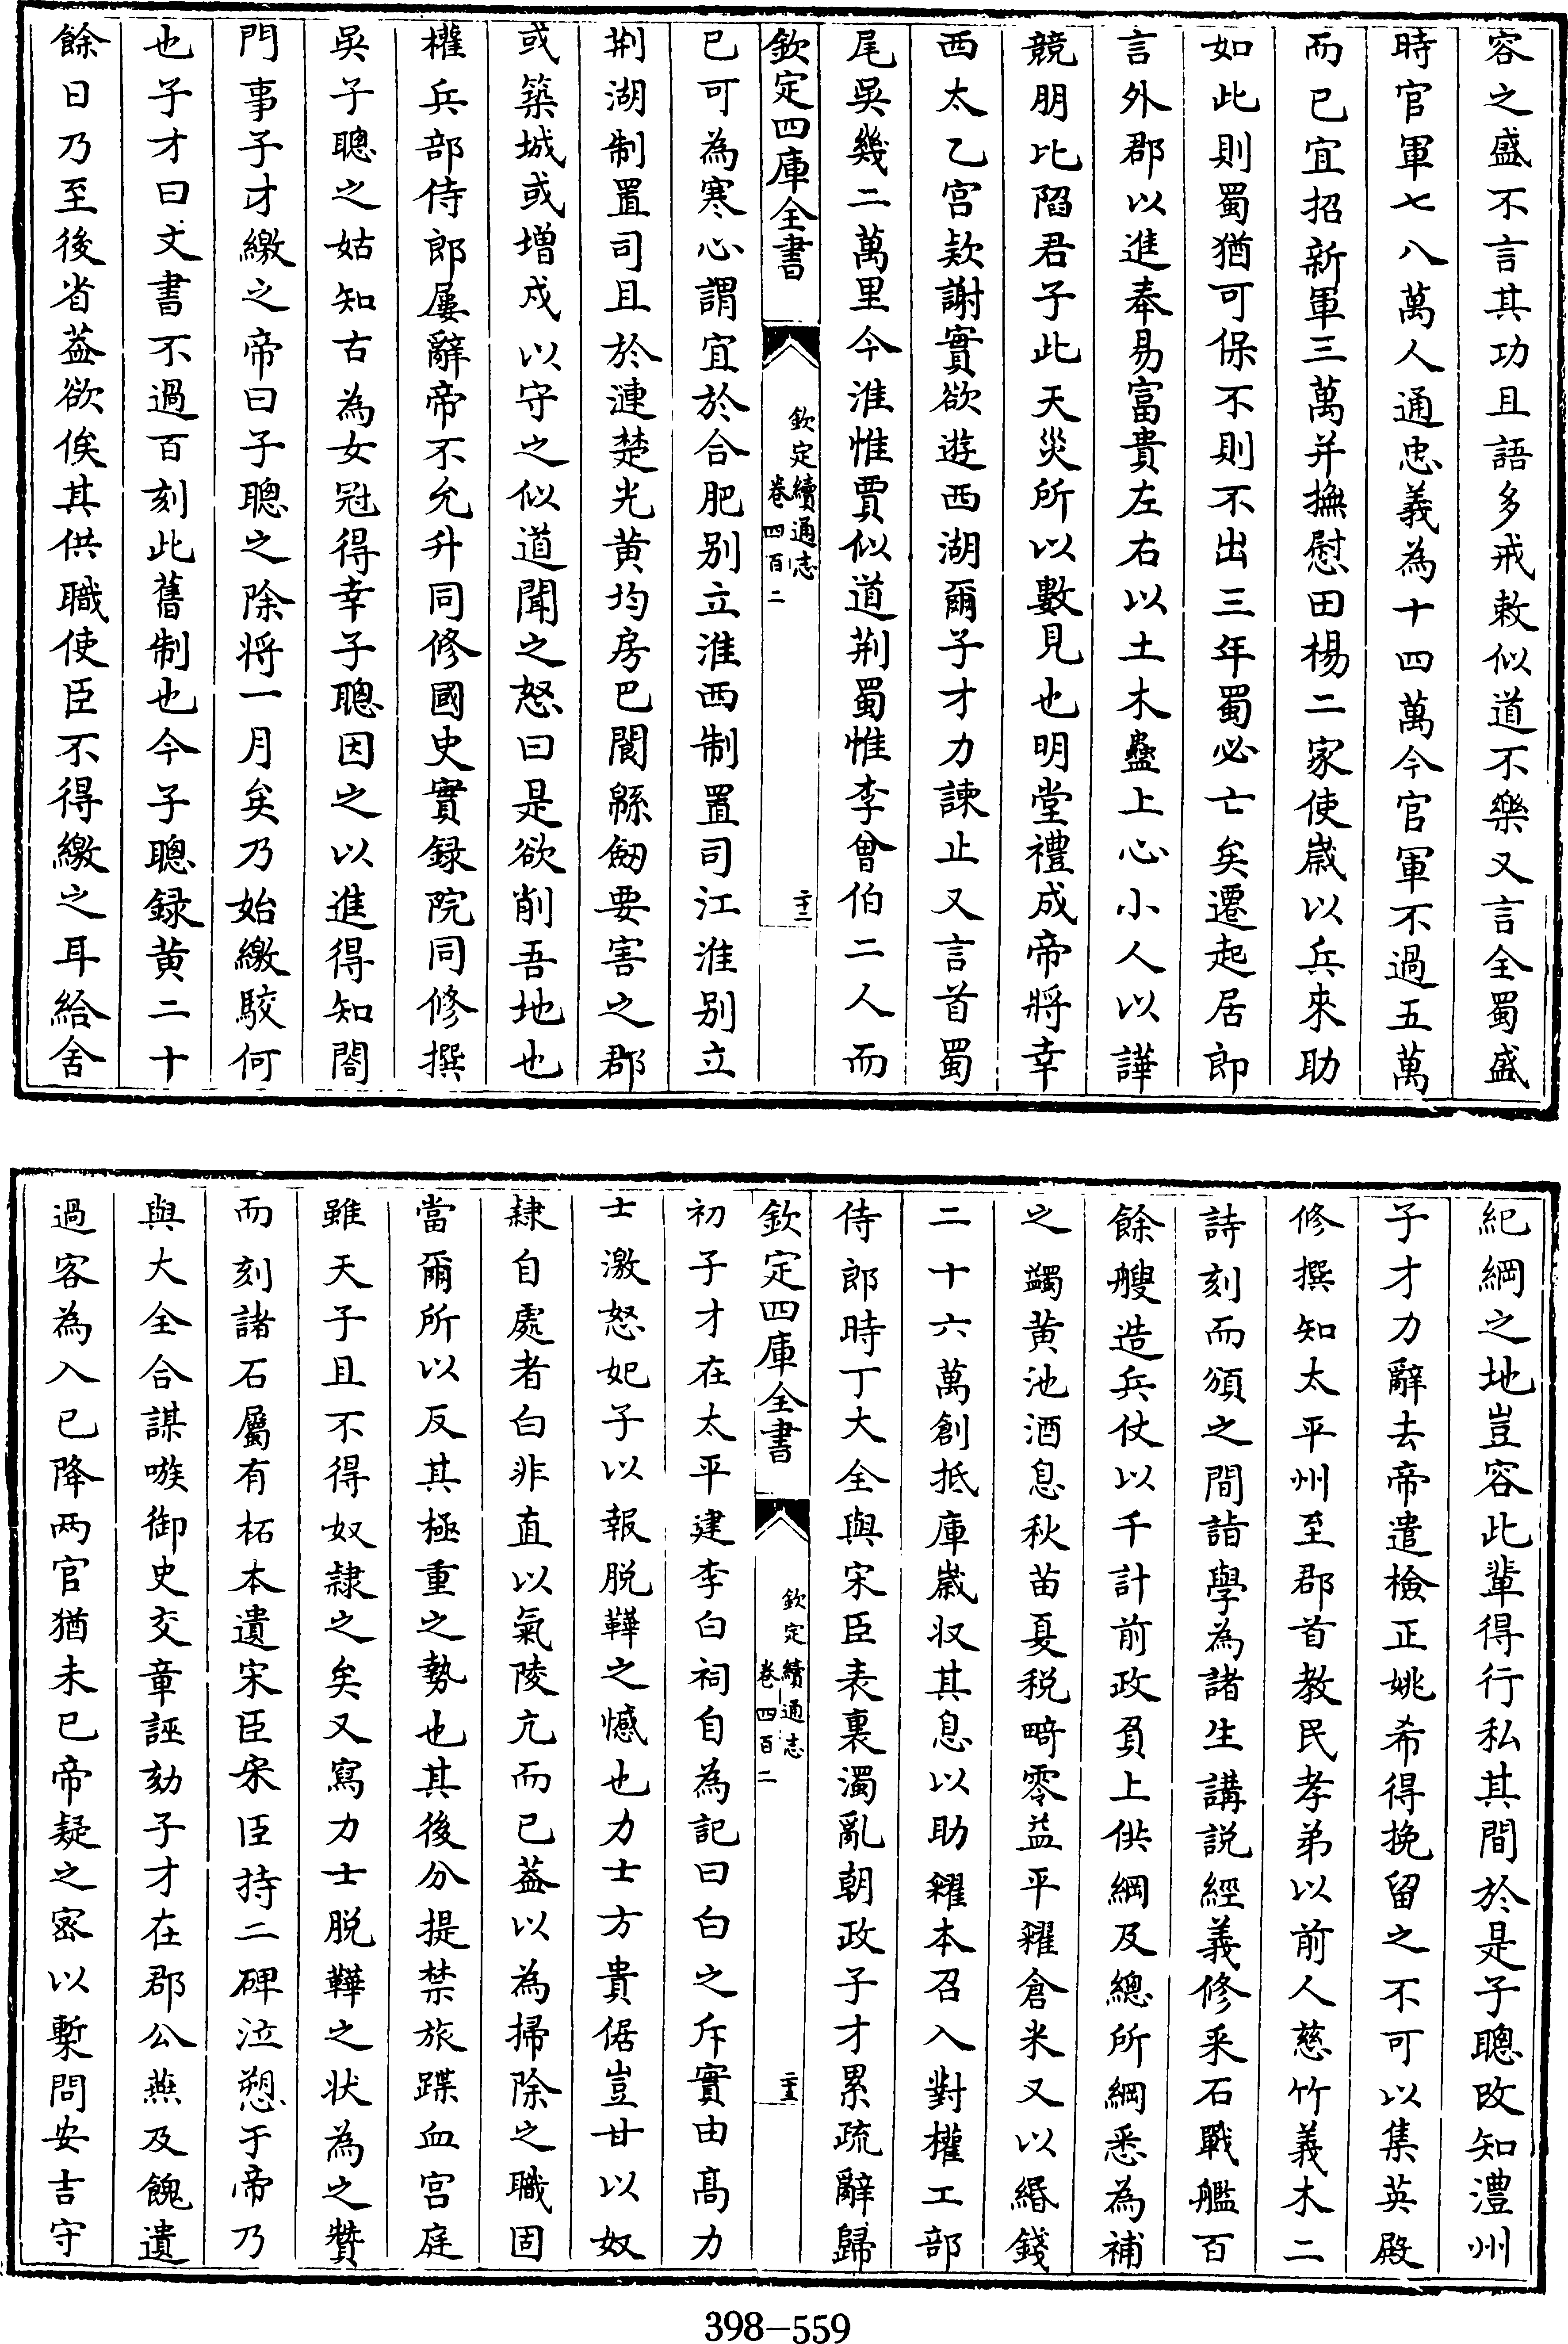 容之盛不言其功且語多戒敕似道不樂又言全蜀盛
時官軍七八萬人通忠義為十四萬今官軍不過五萬
而已宜招新軍三萬并撫慰田楊二家使歳以兵來助
如此則蜀猶可保不則不出三年蜀必亡矣遷起居郎
言外郡以進奉易富貴左右以土木蠱上心小人以譁
競朋比陷君子此天災所以數見也明堂禮成帝將幸
西太乙宫欵謝實欲遊西湖爾子才力諫止又言首蜀
尾吳幾二萬里今淮惟賈似道荆蜀惟李曾伯二人而
欽定四庫全書
欽定續通志
卷四百二
二十二
已可為寒心謂宜於合肥别立淮西制置司江淮别立
荆湖制置司且於漣楚光黄均房巴閬緜劒要害之郡
或築城或增戍以守之似道聞之怒曰是欲削吾地也
權兵部侍郎屢辭帝不允升同修國史實録院同修撰
吳子聰之姑知古為女冠得幸子聰因之以進得知閤
門事子才繳之帝曰子聰之除將一月矣乃始繳駮何
也子才曰文書不過百刻此舊制也今子聰録黄二十
餘日乃至後省葢欲俟其供職使臣不得繳之耳給舍
紀綱之地豈容此輩得行私其間於是子聰改知澧州
子才力辭去帝遣檢正姚希得挽留之不可以集英殿
修撰知太平州至郡首教民孝弟以前人慈竹義木二
詩刻而頒之間詣學為諸生講説經義修采石戰艦百
餘艘造兵仗以千計前政負上供綱及總所綱悉為補
之蠲黄池酒息秋苗夏税畸零益平糴倉米又以緡錢
二十六萬創抵庫歳収其息以助糴本召入對權工部
侍郎時丁大全與宋臣表裏濁亂朝政子才累疏辭歸
欽定四庫全書
欽定續通志
卷四百二
二十三
初子才在太平建李白祠自為記曰白之斥實由髙力
士激怒妃子以報脱鞾之憾也力士方貴倨豈甘以奴
隸自處者白非直以氣陵亢而已葢以為掃除之職固
當爾所以反其極重之勢也其後分提禁旅蹀血宫庭
雖天子且不得奴隸之矣又寫力士脱鞾之状為之贊
而刻諸石屬有柘本遺宋臣宋臣持二碑泣愬于帝乃
與大全合謀嗾御史交章誣劾子才在郡公燕及餽遺
過客為入已降两官猶未已帝疑之宻以槧問安吉守
398-559